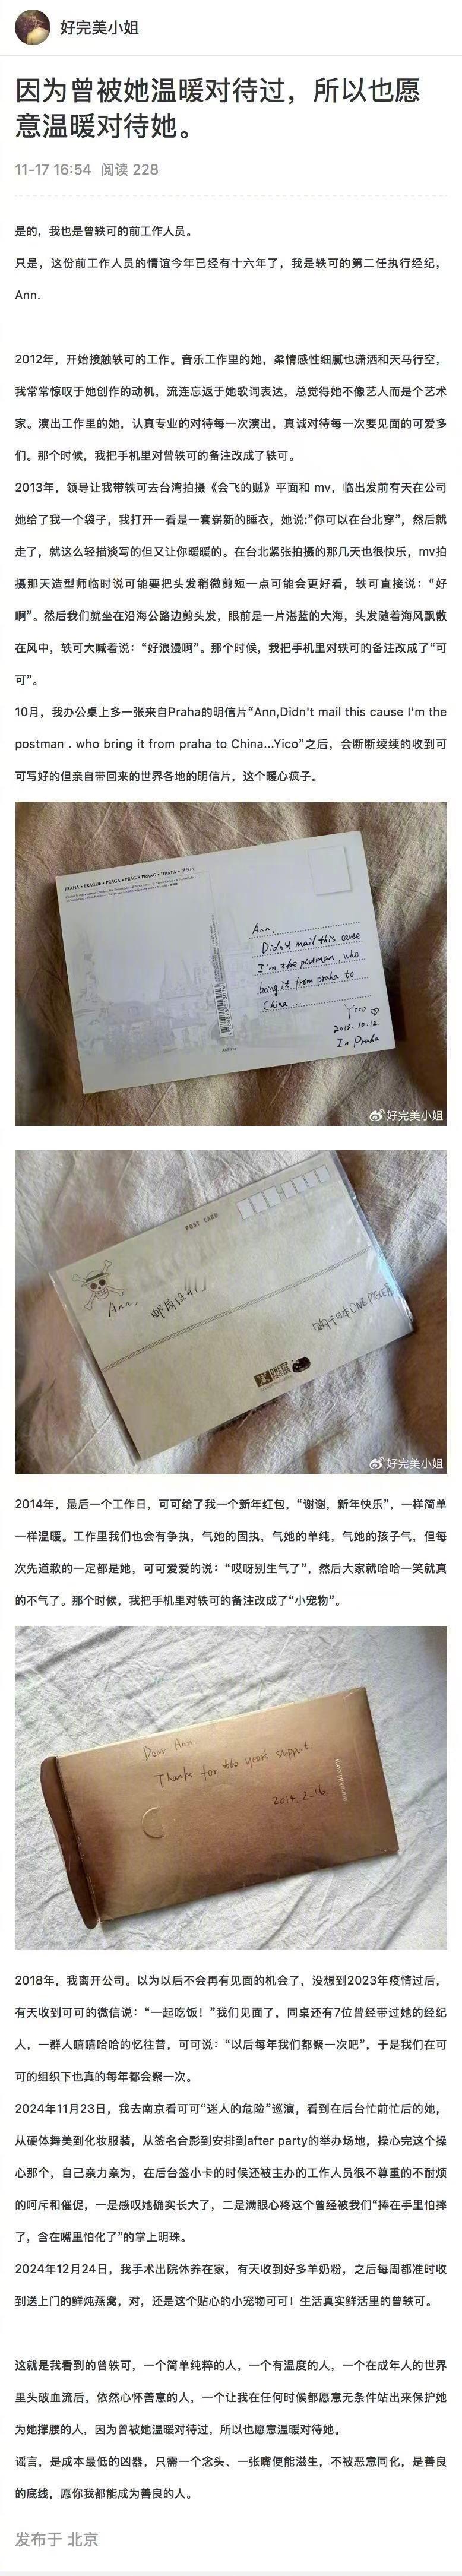 好完美小姐
因为曾被她温暖对待过，所以也愿
意温暖对待她。
11-17 16:54 阅读 228
是的，我也是曾轶可的前工作人员。
只是，这份前工作人员的情谊今年已经有十六年了，我是轶可的第二任执行经纪，
Ann.
2012年，开始接触轶可的工作。音乐工作里的她，柔情感性细腻也潇洒和天马行空，
我常常惊叹于她创作的动机，流连忘返于她歌词表达，总觉得她不像艺人而是个艺术
家。演出工作里的她，认真专业的对待每一次演出，真诚对待每一次要见面的可爱多
们。那个时候，我把手机里对曾轶可的备注改成了轶可。
2013年，领导让我带轶可去台湾拍摄《会飞的贼》平面和 mv，临出发前有天在公司
她给了我一个袋子，我打开一看是一套崭新的睡衣，她说:”你可以在台北穿”，然后就
走了，就这么轻描淡写的但又让你暖暖的。在台北紧张拍摄的那几天也很快乐，mv拍
摄那天造型师临时说可能要把头发稍微剪短一点可能会更好看，轶可直接说：“好
啊”。然后我们就坐在沿海公路边剪头发，眼前是一片湛蓝的大海，头发随着海风飘散
在风中，轶可大喊着说：“好浪漫啊”。那个时候，我把手机里对轶可的备注改成了“可
可”。
10月，我办公桌上多一张来自Praha的明信片“Ann,Didn't mail this cause I'm the
postman . who bring it from praha to China...Yico”之后，会断断续续的收到可
可写好的但亲自带回来的世界各地的明信片，这个暖心疯子。
PRAHA • PRAGUE • PRAGA • PRAG • PRAAG • ПРАГА • プラハ
Ann,
Didn't mail this cause
I'm the postman, who
bring it from praha to
China...
Yico
2013.10.12
In Praha
好完美小姐
POST CARD
Ann,
ONE PIECE
好完美小姐
2014年，最后一个工作日，可可给了我一个新年红包，“谢谢，新年快乐”，一样简单
一样温暖。工作里我们也会有争执，气她的固执，气她的单纯，气她的孩子气，但每
次先道歉的一定都是她，可可爱爱的说：“哎呀别生气了”，然后大家就哈哈一笑就真
的不气了。那个时候，我把手机里对轶可的备注改成了“小宠物”。
Dear Ann
Thanks for the years support.
2014.2.16
2018年，我离开公司。以为以后不会再有见面的机会了，没想到2023年疫情过后，
有天收到可可的微信说：“一起吃饭！”我们见面了，同桌还有7位曾经带过她的经纪
人，一群人嘻嘻哈哈的忆往昔，可可说：“以后每年我们都聚一次吧”，于是我们在可
可的组织下也真的每年都会聚一次。
2024年11月23日，我去南京看可可“迷人的危险”巡演，看到在后台忙前忙后的她，
从硬体舞美到化妆服装，从签名合影到安排到after party的举办场地，操心完这个操
心那个，自己亲力亲为，在后台签小卡的时候还被主办的工作人员很不尊重的不耐烦
的呵斥和催促，一是感叹她确实长大了，二是满眼心疼这个曾经被我们“捧在手里怕摔
了，含在嘴里怕化了”的掌上明珠。
2024年12月24日，我手术出院休养在家，有天收到好多羊奶粉，之后每周都准时收
到送上门的鲜炖燕窝，对，还是这个贴心的小宠物可可！生活真实鲜活里的曾轶可。
这就是我看到的曾轶可，一个简单纯粹的人，一个有温度的人，一个在成年人的世界
里头破血流后，依然心怀善意的人，一个让我在任何时候都愿意无条件站出来保护她
为她撑腰的人，因为曾被她温暖对待过，所以也愿意温暖对待她。
谣言，是成本最低的凶器，只需一个念头、一张嘴便能滋生，不被恶意同化，是善良
的底线，愿你我都能成为善良的人。
发布于 北京